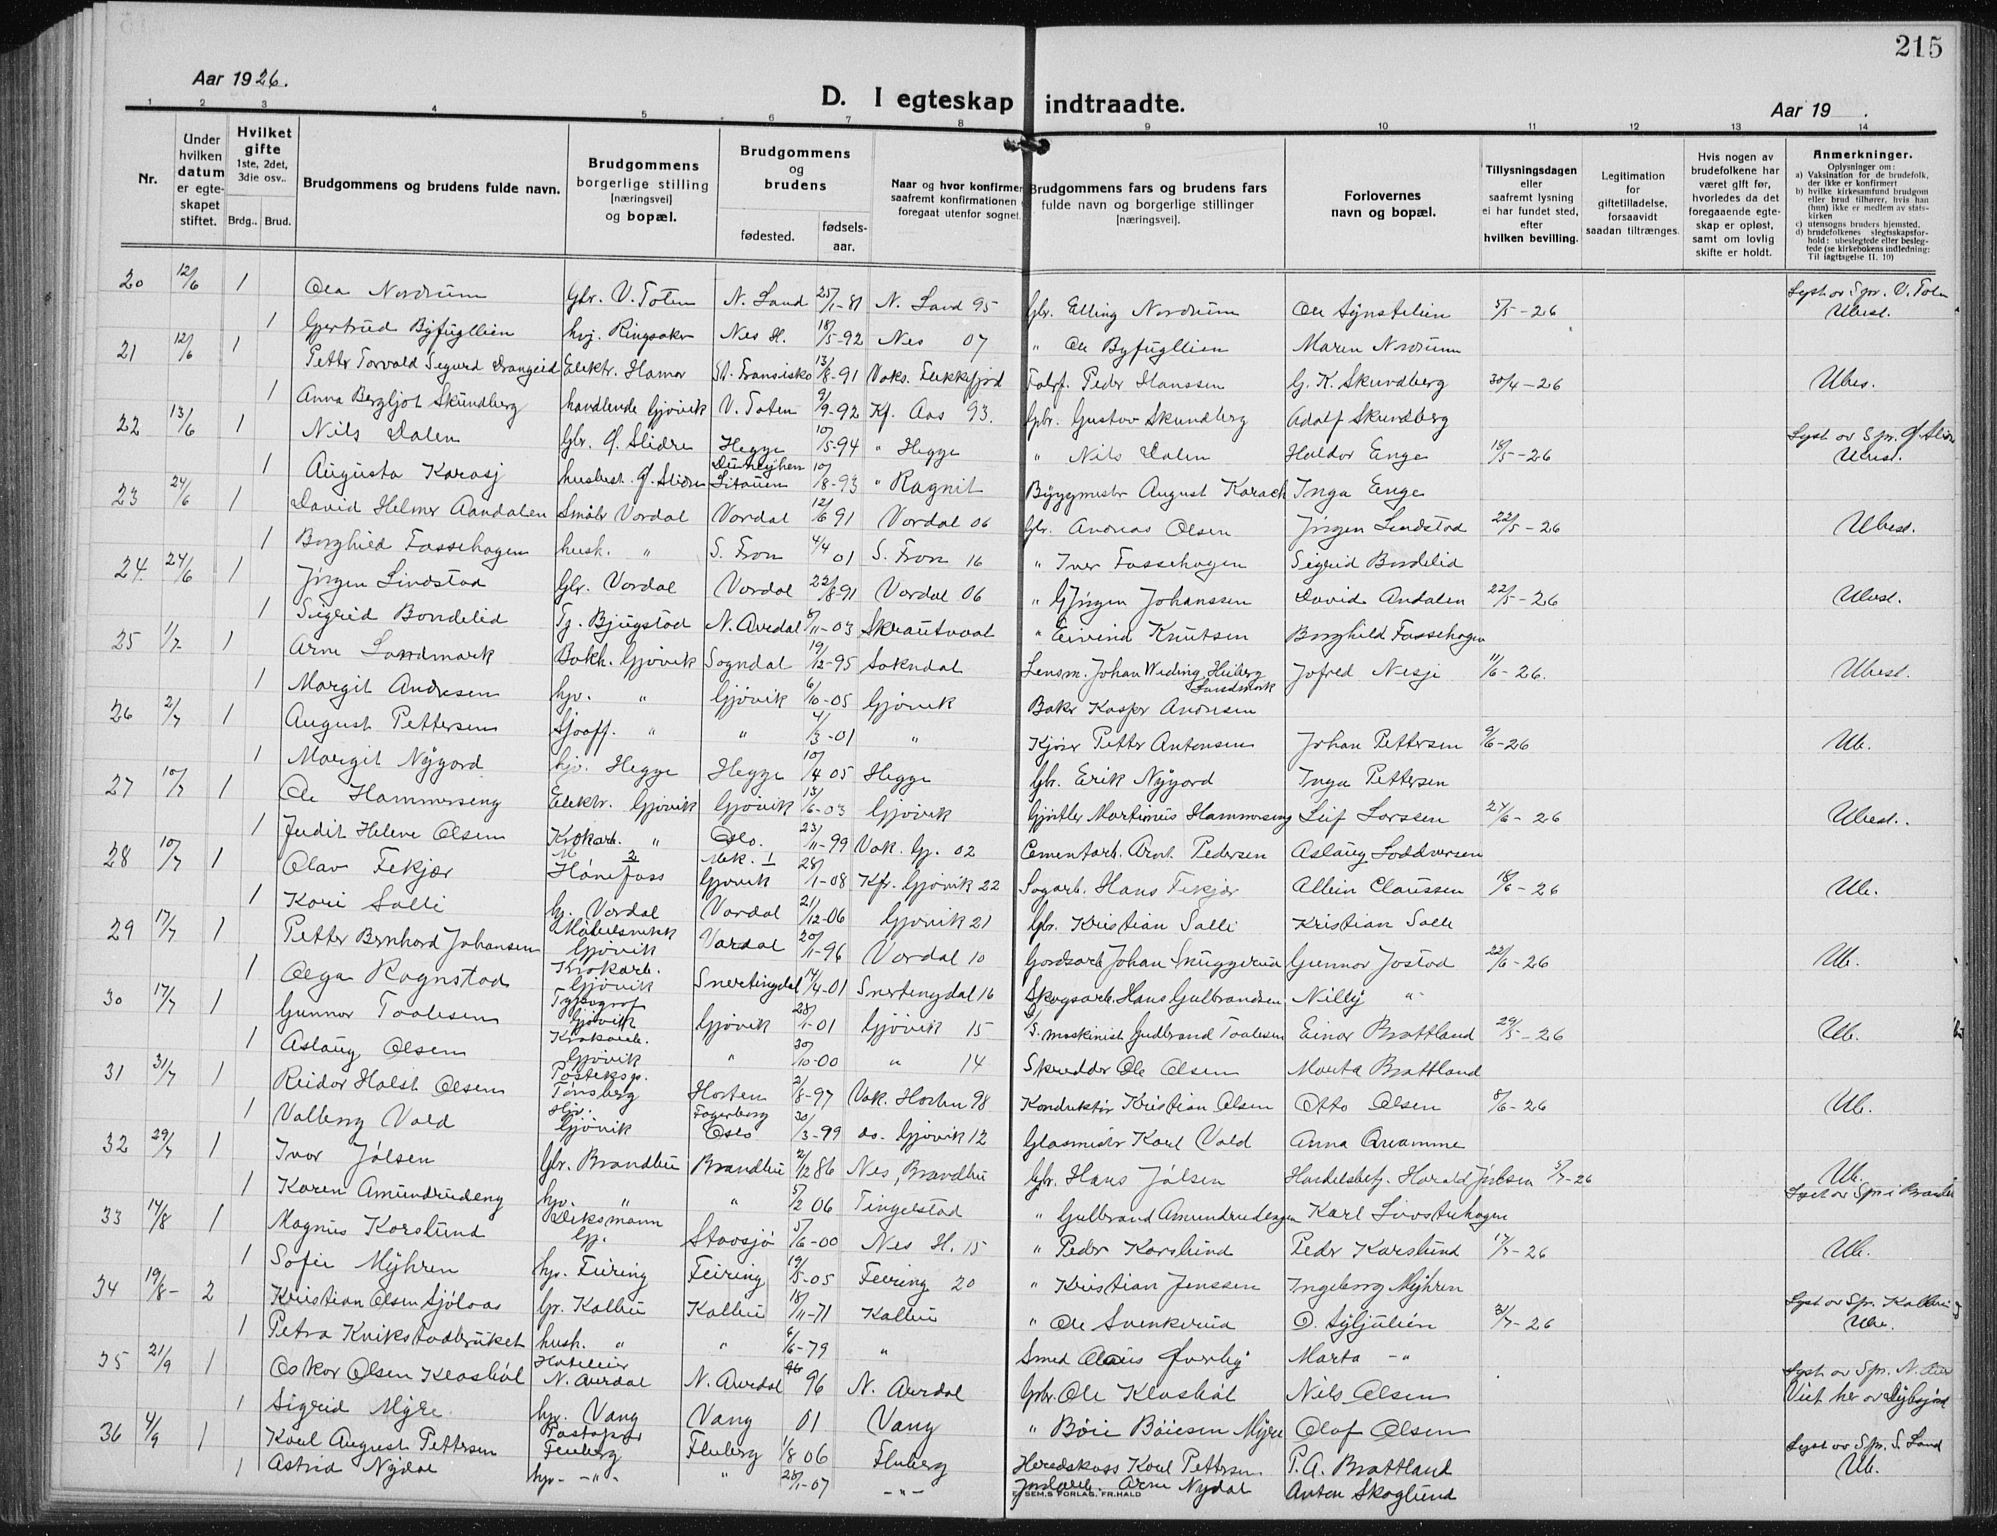 215
Aar 1926.
D. I egteskap indtraadte.
Aar 19 .
1 2 3 4 5 6 7 8 9 10 11 12 13 14
Nr.
Under hvilken datum er egteskapet stiftet.
Hvilket gifte 1ste, 2det, 3die osv..
Brdg.. Brud.
Brudgommens og brudens fulde navn.
Brudgommens borgerlige stilling [næringsvei] og bopæl.
Brudgommens og brudens
fødested. fødselsaar.
Naar og hvor konfirmer
saafremt konfirmationen
foregaat utenfor sognet.
Brudgommens fars og brudens fars fulde navn og borgerlige stillinger [næringsvei].
Forlovernes navn og bopæl.
Tillysningsdagen eller saafremt lysning ei har fundet sted, efter hvilken bevilling.
Legitimation for giftetilladelse, forsaavidt saadan tiltrænges.
Hvis nogen av brudefolkene har været gift før, hvorledes da det foregaaende egteskap er opløst, samt om lovlig skifte er holdt.
Anmerkninger.
Oplysninger om:
a) Vaksination for de brudefolk, der ikke er konfirmert
b) hvilke kirkesamfund brudgom eller brud tilhører, hvis han (hun) ikke er medlem av statskirken
c) utensogns bruders hjemsted.
d) brudefolkenes slegtsskapsforhold: ubeslegtede eller beslegtede (se kirkebokens indledning: Til iagttagelse II. 10)
20 12/6 1 Ola Nordrum Gbr. V. Toten N. Land 25/1-81 N. Land 95 Gbr. Elling Nordrum Ole Synstelien 5/5-26 Lyst av Spr. V. Toten Ubesl.
1 Gjertrud Byfuglien hvj. Ringsaker Nes H. 18/5-92 Nes 07 " Ole Byfuglien Maren Nordrum
21 12/6 1 Petter Torvald Sigurd Drangeid Elektr. Hamar St. Fransisko 13/8-91 Vaks. Flekkefjord Peder Hanssen G. K. Skundberg 30/4-26 Ubes.
1 Anna Bergljot Skundberg handlende Gjøvik V. Toten 9/9-92 Kf. Aas 93. Gbr. Gustav Skundberg Adolf Skundberg
22 13/6 1 Nils Dalen Gbr. Ø. Slidre Hegge 10/5-94 " Hegge " Nils Dalen Haldor Enge 18/5-26 Lyst av Spr. Ø. Slidre Ubesl.
1 Augusta Karasj husbest. Ø. Slidre Litauen 10/8-93 " Ragnit Byggmestr August Karach Inga Enge
23 24/6 1 David Helmer Aandalen Småbr Vardal Vardal 12/6 91 Vardal 06 Gbr. Andreas Olsen Jörgen Lindstad 22/5-26 Ubesl.
1 Borghild Fossehagen hush. " S. Fron 4/4 01 S. Fron 16 " Iver Fossehagen Sigrid Bondelid
24. 24/6 1 Jörgen Lindstad Gbr. Vardal Vardal 22/8-91 Vardal 06 " Jörgen Johanssen David Andalen 22/5-26 Ubesl.
1 Sigrid Bondelid Tj. Bjugstad N. Aurdal 8/11-03 Skrautvaal " Eivind Knutsen Borghild Fossehagen
25 1/7- 1 Arne Landmark Bokh. Gjøvik Sogndal 19/12-95 Sokndal Lensm. Johan Weding Heiberg Landmark Jofred Nesje 11/6-26. Ubesl.
1 Margit Andresen hjv. " Gjøvik 6/10-05 Gjøvik Baker Kasper Andresen
26 2/7 1 August Pettersen Sjåff. " " 4/3-01 " Kjörer Petter Antonsen Johan Pettersen 9/6-26 Ub.
1 Margit Nygard hjv. Hegge Hegge 10/4 05 Hegge Gbr. Erik Nygard Inga Pettersen
27 10/7 1 Ole Hammerseng Elektr. Gjøvik Gjøvik 13/6-03 Gjøvik Martinius Hammerseng Leif Larssen 24/6-26 Ubesl.
1 Judit Helene Olsen Krokarb. " Oslo. 23/11-99 Vak. Gj. 02 Cementarb. Arnt. Pedersen Aslaug Loddversen
28 10/7 1 Olav Fekjær Hønefoss Gjøvik 28/1-08 Kfr. Gjøvik 22 Sagarb. Hans Fekjær Allein Claussen 18/6-26 Ub.
1 Kari Salli hj. Vardal Vardal 21/12-06 Gjøvik 21 Gbr. Kristian Salli Kristian Salli
29 17/7 1 Petter Bernhard Johansen Möbelsnekk Gjøvik Vardal 20/11-96 Vardal 10 Gardsarb Johan Snuggerud Gunnar Jostad 22/6-26 Ub.
1 Olga Ragnstad Krokarb. Gjøvik Snertingdal 14/4-01 Snertingdal 16 Skogsarb. Hans Gulbrandsen Nilly "
30 17/7 1 Gunnar Toalesen Typograf Gjøvik Gjøvik 28/1-01 Gjøvik 15 maskinist Gudbrand Toalesen Einar Brattland 29/5-26 Ub.
1 Aslaug Olsen Krokarb. Gjøvik " 30/10-00 " 14 Skredder Ole Olsen Marta Brattland
31 31/7 1 Reidar Holst Olsen Posteksp. Tønsberg Horten 2/8-97 Vak. Horten 98 Konduktör Kristian Olsen Otto Olsen 8/6-26 Ub.
1 Valborg Vold Hjv. Gjøvik Fagerborg Oslo 30/3-99 do. Gjøvik 12 Glasmestr Karl Vold Anna Qvamme
32 29/7 1 Ivar Jølsen Gbr. Brandbu Brandbu 2/12 86 Nes, Brandbu Gbr. Hans Jølsen Handelsbetj. Harald Jølsen 5/7-26 Ub. Lyst av Spr i Brandbu
1 Karen Amundrudeng hjv. " " 5/2 06 Tingelstad " Gulbrand Amundrudengen Karl Lovstuhagen
33 14/8 1 Magnus Karslund Verksmann Gjv. Stavsjø 5/6-00 Nes H. 15 " Peder Karslund Peder Karslund 17/7-26 Ub.
1 Sofie Myhren hjv. Feiring Feiring 19/5-05 Feiring 20 " Kristian Jenssen Ingeborg Myhren
34 19/8- 2 Kristian Olsen Sjölaas br. Kolbu Kolbu 18/11-71 Kolbu " Ole Svenkerud O. Syljulien 31/7-26 Lyst av Spr. Kolbu Ube.
1 Petra Kvikstadbruket hush. " " 6/6-79 " Smed Olaus Øverby Marta -"-
35 21/9 1 Oskar Olsen Klashøl Hoteleier N. Aurdal N. Aurdal 96 N. Aurdal Gbr. Ole Klashøl Nils Olsen Lyst av Spr. N. Aur Viet her av Dybsjord
1 Sigrid Myre. hjv. Vang Vang 01 Vang " Bøie Bøiesen Myre Olaf Olsen
36 4/9 1 Karl August Pettersen Poståpner Fluberg Fluberg 1/8 06 Fluberg Heredskass Karl Pettersen P. A. Brattland Lyst av Spr. S. Land Ub.
1 Astrid Nydal hjv- -"- " 28/1-07 -"- Jordarb. Arne Nydal Anton Skoglund
E. SEM.S FORLAG. FR.HALD